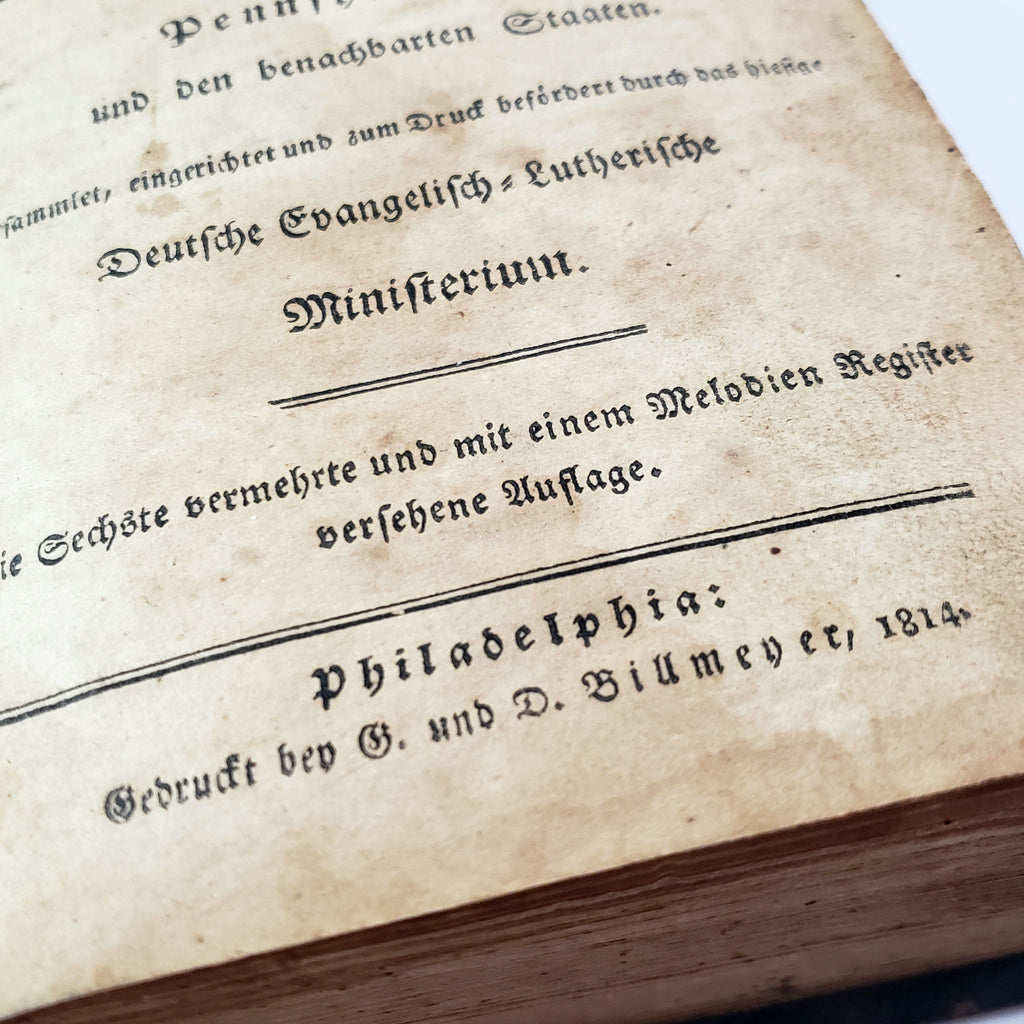 und den benachbarten Staaten.
eingerichtet und zum Druck befördert durch das hiesige
Deutsche Evangelisch-Lutherische
Ministerium.
Sechste vermehrte und mit einem Melodien Register
versehene Auflage.
Philadelphia:
Gedruckt bey G. und D. Billmeyer, 1814.